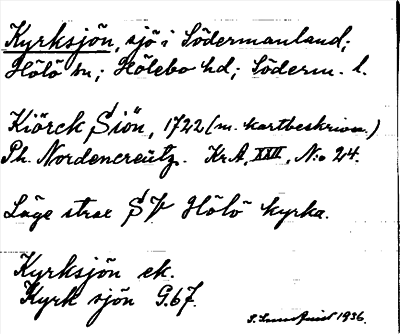 Kyrksjön, sjö i Södermanland;
Hölö sn; Hölebo hd; Söderm. l.
Kiörck Siön, 1722 (m. kartbeskrivn.)
Ph. Nordencreutz. KrA, XXII, N:o 24.
Läge strax SV Hölö kyrka.
Kyrksjön ek.
Kyrk sjön G.67.
1936.